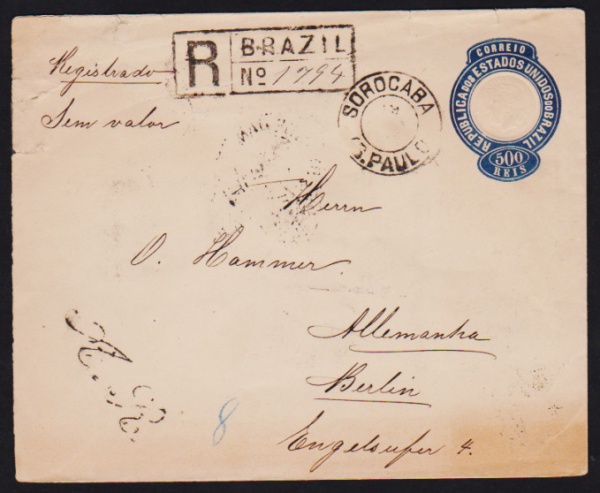 Registrado
Sem valor
R
BRAZIL
Nº 1794
SOROCABA
S. PAULO
CORREIO
REPUBLICA DOS ESTADOS UNIDOS DO BRAZIL
500
REIS
Herrn
O. Hammer.
Allemanha
Berlin
Engelsufer 4.
A. R.
8